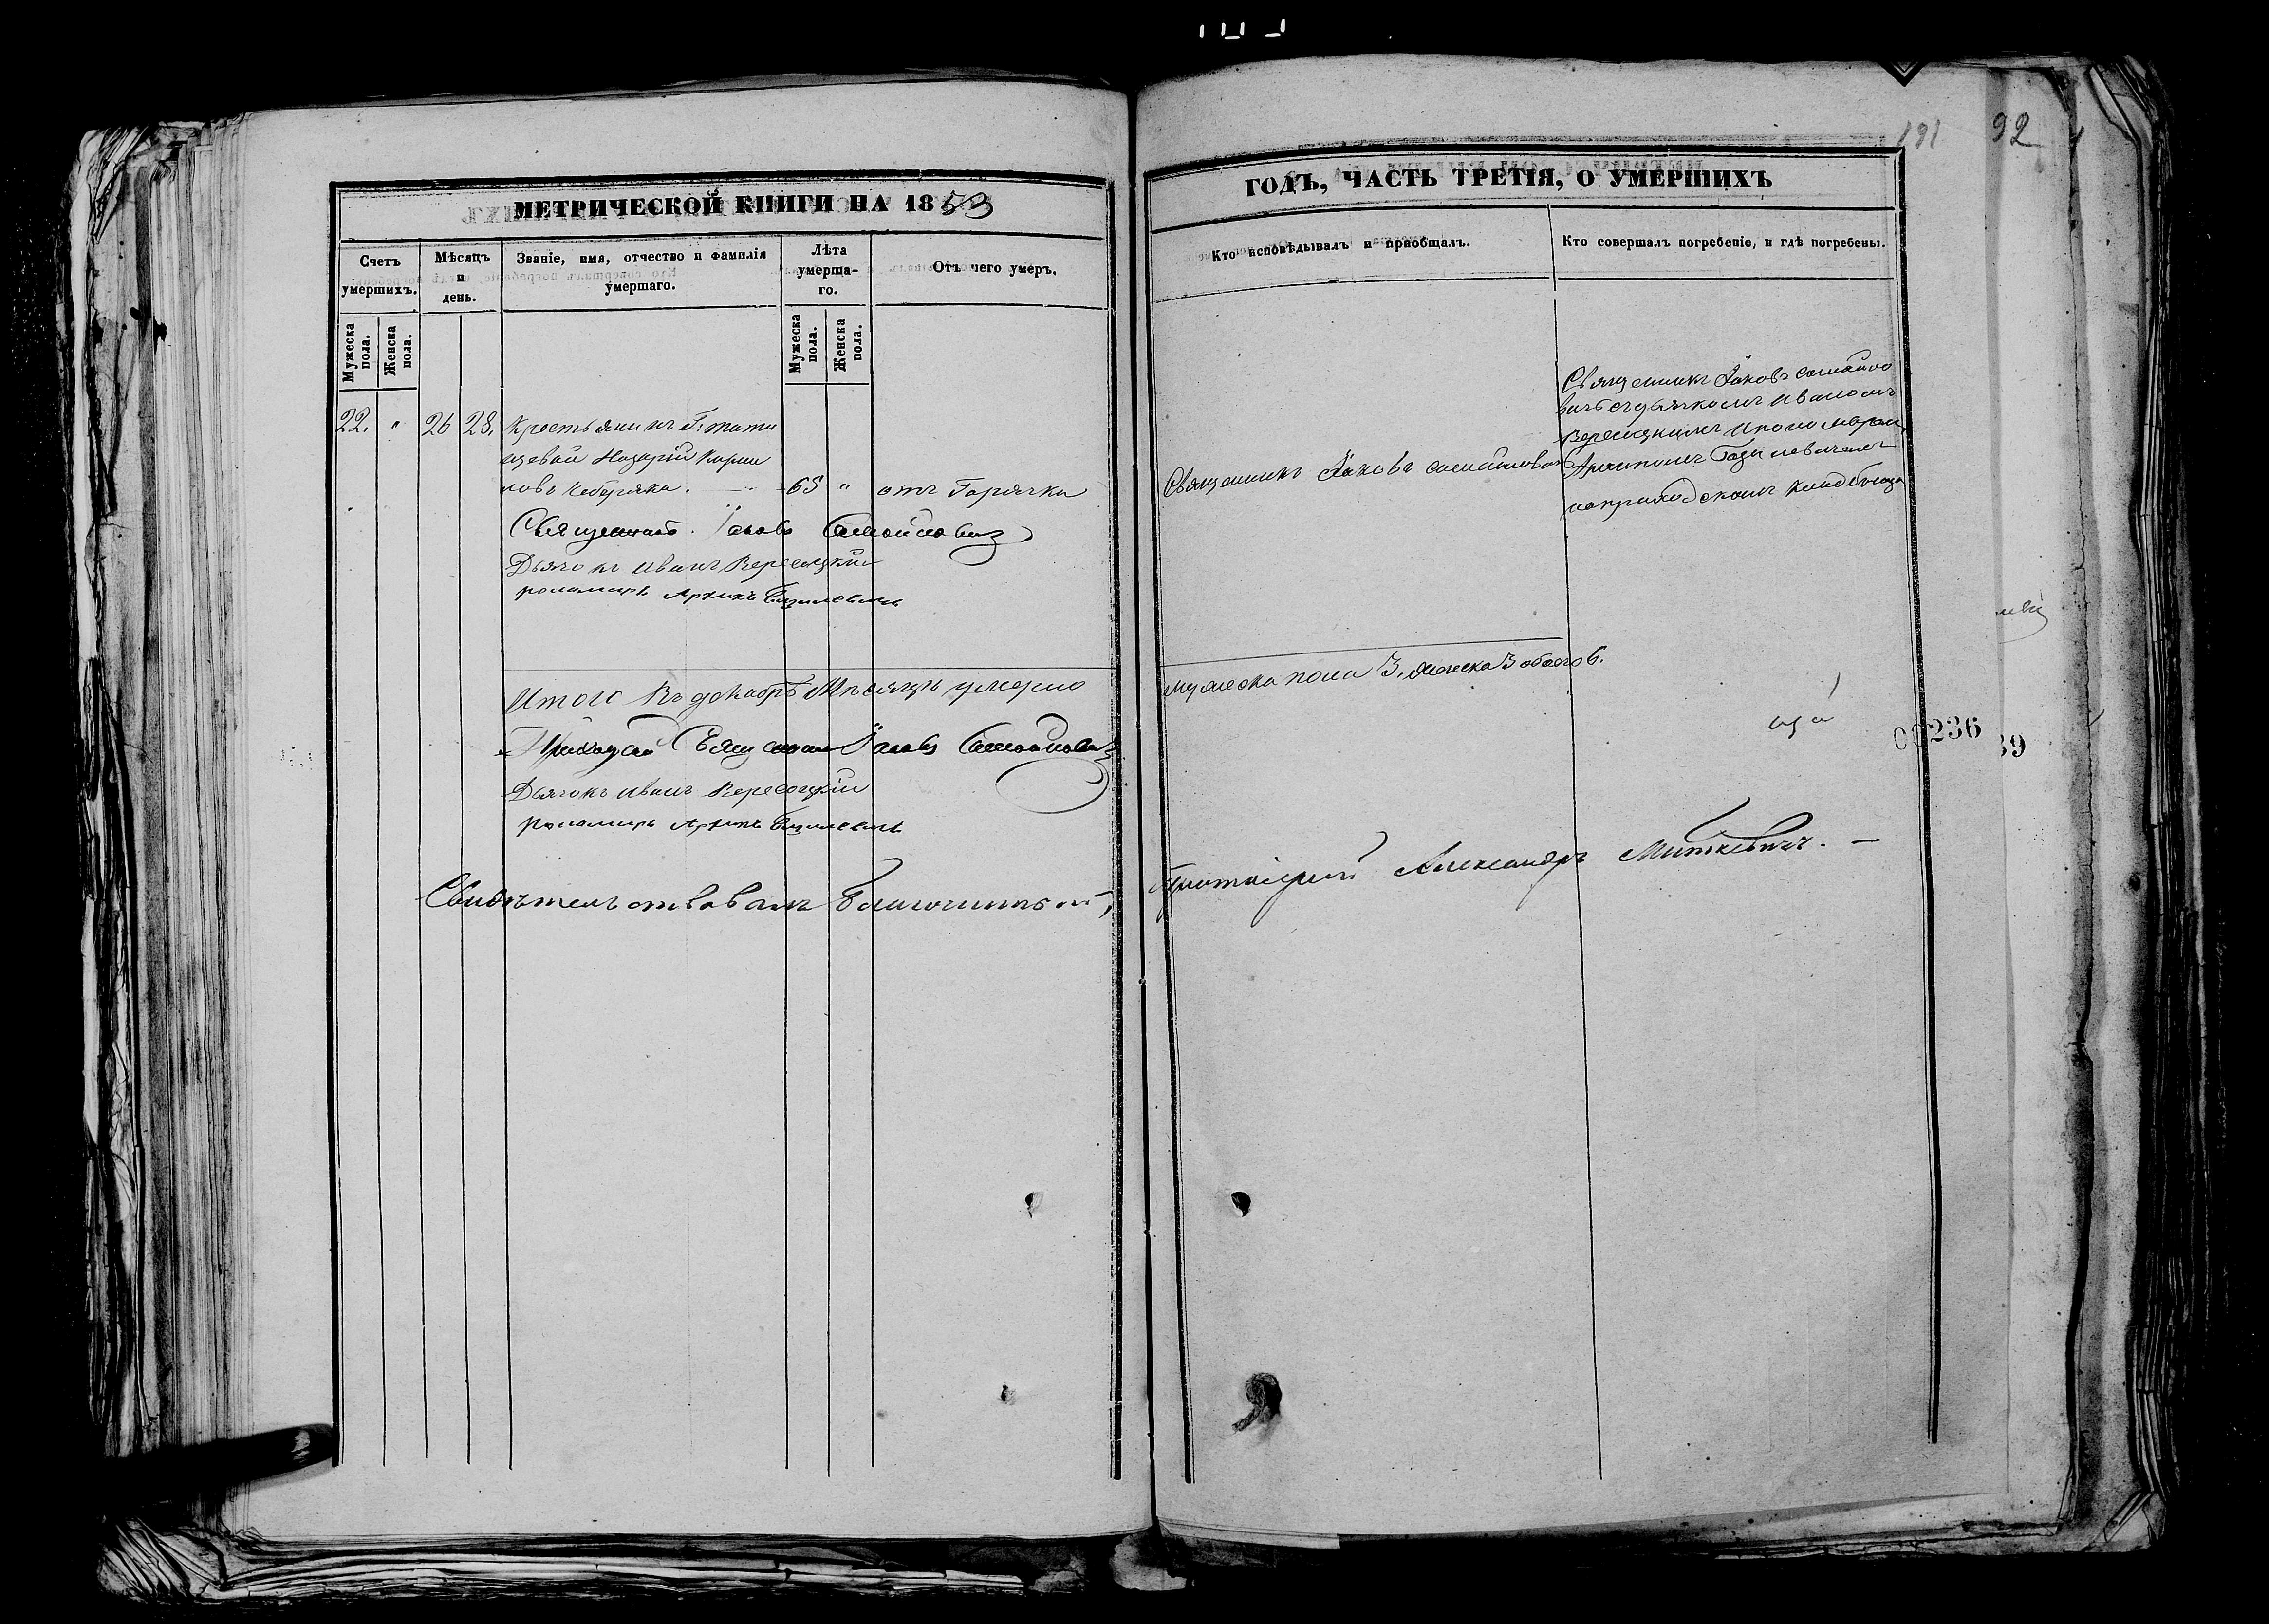 МЕТРИЧЕСКОЙ КНИГИ НА 1853
Счетъ умершихъ.
Мужеска пола.
Женска пола.
Мѣсяцъ и день.
Званіе, имя, отчество и фамилія умершаго.
Лѣта умерша-го.
Мужеска пола.
Женска пола.
Отъ чего умеръ.
22. " 26 28. Крестьянинъ Г: тати
щевой Назарій Корни
ловъ 65 " отъ Горячки
Священникъ Іаковъ Самойловичъ
Дьячокъ Иванъ Вересоцкій
пономарь Архипъ Базилевичъ
Итого Въ декабрѣ Мѣсяцѣ умерло
Приходскій Священникъ Іаковъ Самойловичъ
Дьячокъ Иванъ Вересоцкій
Пономарь Архипъ Базилевичъ
Свидѣтельствовалъ Благочинный,
ГОДЪ, ЧАСТЬ ТРЕТІЯ, О УМЕРШИХЪ
181
92
Кто исповѣдывалъ и пріобщалъ.
Кто совершалъ погребеніе, и гдѣ погребены.
Священникъ Іаковъ Самойловичъ
Священникъ Іаковъ Самойло
вичъ съ дьячкомъ Иваномъ
Вересоцкимъ и пономаремъ
Архипомъ Базилевичемъ
на приходскомъ кладбищѣ
мужеска пола 3, женска 3 обоего 6.
00236
39
Протоіерей Александръ Миткевичъ. —